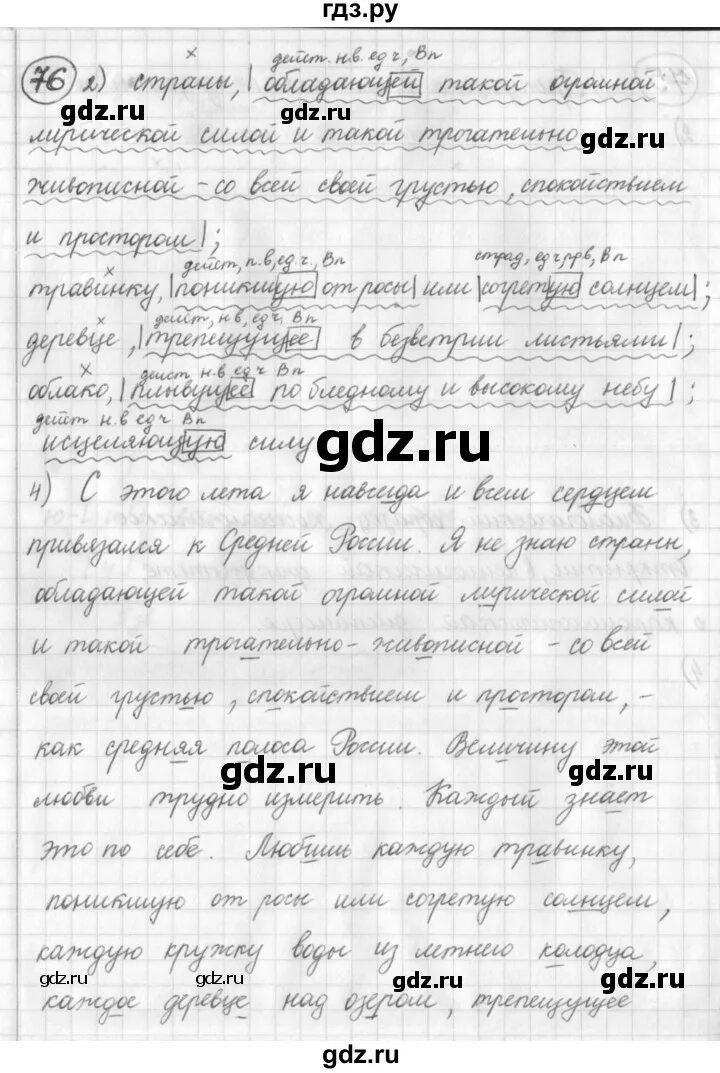 гдз.ру
х дейст. н.в. ед ч, Вп
76 2) страны, | обладающей такой огромной
лирической силой и такой трогательно
живописной - со всей своей грустью, спокойствием
и простором |;
х дейст, п.в, ед.ч., Вп страд, ед ч, прв, Вп
травинку, | поникшую от росы | или | согретую солнцем |;
х дейст, н.в, ед ч, Вп
деревце, | трепещущее в безветрии листьями |;
х дейст н.в ед ч Вп
облако, | плывущее по бледному и высокому небу |;
дейст н.в ед ч Вп
исцеляющую силу
4) С этого лета я навсегда и всем сердцем
привязался к Средней России. Я не знаю страны,
обладающей такой огромной лирической силой
и такой трогательно-живописной - со всей
своей грустью, спокойствием и простором, -
как средняя полоса России. Величину этой
любви трудно измерить. Каждый знает
это по себе. Любишь каждую травинку,
поникшую от росы или согретую солнцем,
каждую кружку воды из летнего колодца,
каждое деревце над озером, трепещущее
gdz.ru
gdz.ru
gdz.ru
gdz.ru
gdz.ru
gdz.ru
gdz.ru
gdz.ru
gdz.ru
gdz.ru
gdz.ru
gdz.ru